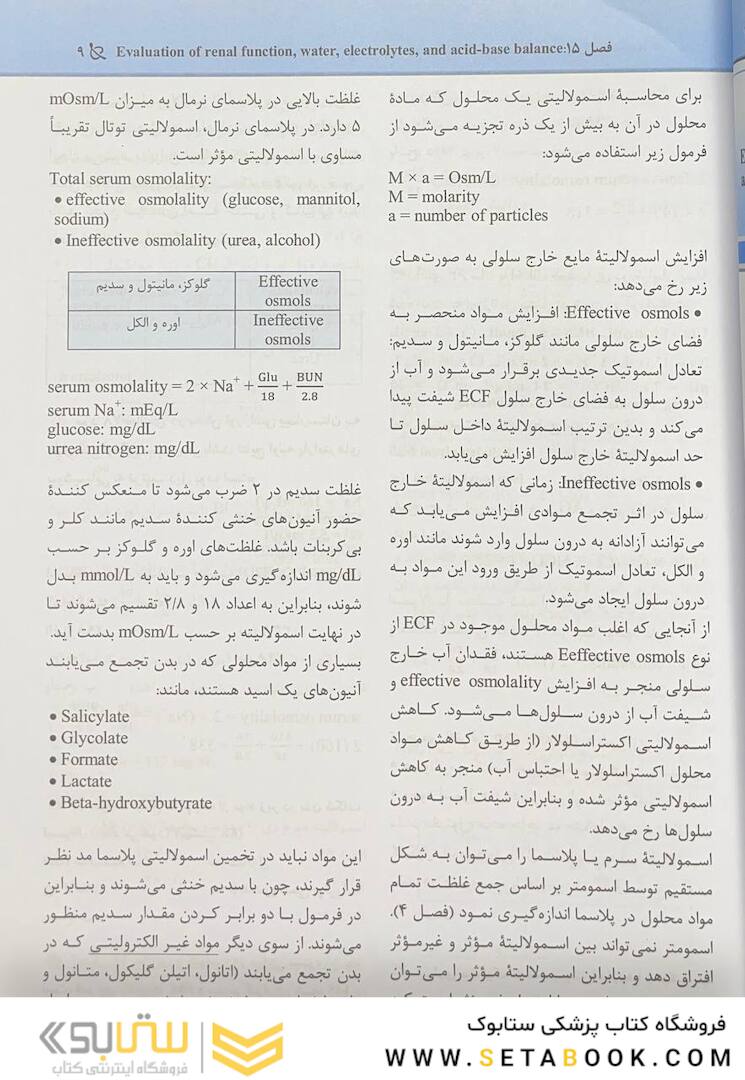 فصل ۱۵:Evaluation of renal function, water, electrolytes, and acid-base balance ۹
برای محاسبهٔ اسمولالیتی یک محلول که مادهٔ
محلول در آن به بیش از یک ذره تجزیه می‌شود از
فرمول زیر استفاده می‌شود:
M × a = Osm/L
M = molarity
a = number of particles
افزایش اسمولالیتهٔ مایع خارج سلولی به صورت‌های
زیر رخ می‌دهد:
• Effective osmols: افزایش مواد منحصر به
فضای خارج سلولی مانند گلوکز، مانیتول و سدیم:
تعادل اسموتیک جدیدی برقرار می‌شود و آب از
درون سلول به فضای خارج سلول ECF شیفت پیدا
می‌کند و بدین ترتیب اسمولالیتهٔ داخل سلول تا
حد اسمولالیتهٔ خارج سلول افزایش می‌یابد.
• Ineffective osmols: زمانی که اسمولالیتهٔ خارج
سلول در اثر تجمع موادی افزایش می‌یابد که
می‌توانند آزادانه به درون سلول وارد شوند مانند اوره
و الکل، تعادل اسموتیک از طریق ورود این مواد به
درون سلول ایجاد می‌شود.
از آنجایی که اغلب مواد محلول موجود در ECF از
نوع Eeffective osmols هستند، فقدان آب خارج
سلولی منجر به افزایش effective osmolality و
شیفت آب از درون سلول‌ها می‌شود. کاهش
اسمولالیتی اکستراسلولار (از طریق کاهش مواد
محلول اکستراسلولار یا احتباس آب) منجر به کاهش
اسمولالیتی مؤثر شده و بنابراین شیفت آب به درون
سلول‌ها رخ می‌دهد.
اسمولالیتهٔ سرم یا پلاسما را می‌توان به شکل
مستقیم توسط اسمومتر بر اساس جمع غلظت تمام
مواد محلول در پلاسما اندازه‌گیری نمود (فصل ۴).
اسمومتر نمی‌تواند بین اسمولالیتهٔ مؤثر و غیرمؤثر
افتراق دهد و بنابراین اسمولالیتهٔ مؤثر را می‌توان
غلظت بالایی در پلاسمای نرمال به میزان mOsm/L
۵ دارد. در پلاسمای نرمال، اسمولالیتی توتال تقریباً
مساوی با اسمولالیتی مؤثر است.
Total serum osmolality:
• effective osmolality (glucose, mannitol,
sodium)
• Ineffective osmolality (urea, alcohol)
گلوکز، مانیتول و سدیم Effective
osmols
اوره و الکل Ineffective
osmols
serum osmolality = 2 × Na⁺ + Glu/18 + BUN/2.8
serum Na⁺: mEq/L
glucose: mg/dL
urrea nitrogen: mg/dL
غلظت سدیم در ۲ ضرب می‌شود تا منعکس کنندهٔ
حضور آنیون‌های خنثی کنندهٔ سدیم مانند کلر و
بی‌کربنات باشد. غلظت‌های اوره و گلوکز بر حسب
mg/dL اندازه‌گیری می‌شود و باید به mmol/L بدل
شوند، بنابراین به اعداد ۱۸ و ۲/۸ تقسیم می‌شوند تا
در نهایت اسمولالیته بر حسب mOsm/L بدست آید.
بسیاری از مواد محلولی که در بدن تجمع می‌یابند
آنیون‌های یک اسید هستند، مانند:
• Salicylate
• Glycolate
• Formate
• Lactate
• Beta-hydroxybutyrate
این مواد نباید در تخمین اسمولالیتی پلاسما مد نظر
قرار گیرند، چون با سدیم خنثی می‌شوند و بنابراین
در فرمول با دو برابر کردن مقدار سدیم منظور
می‌شوند. از سوی دیگر مواد غیر الکترولیتی که در
بدن تجمع می‌یابند (اتانول، اتیلن گلیکول، متانول و
فروشگاه کتاب پزشکی ستابوک
WWW.SETABOOK.COM
ستابوک
فروشگاه اینترنتی کتاب